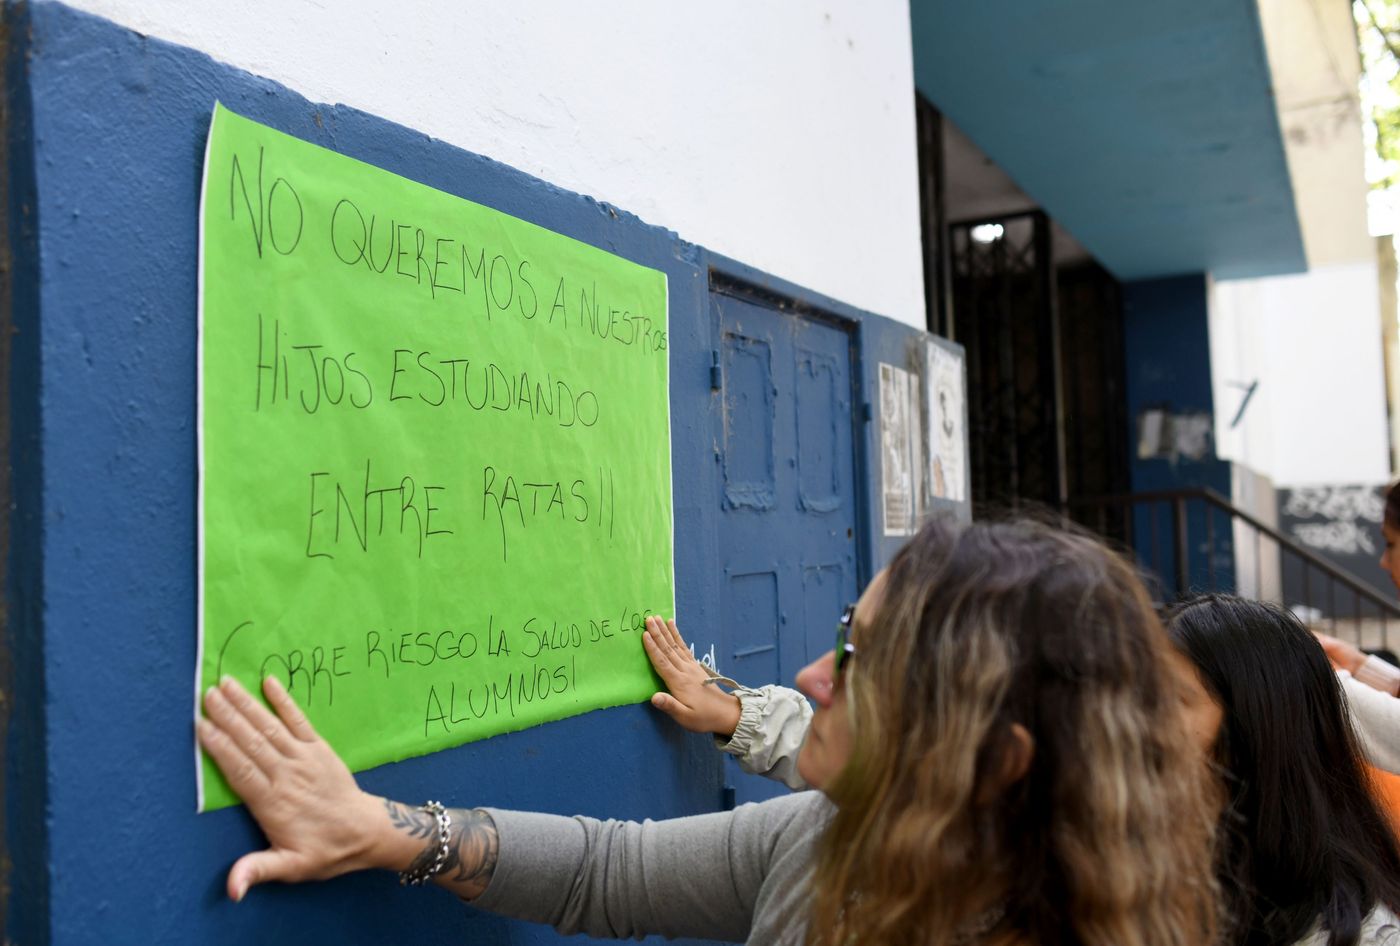 NO QUEREMOS A NUESTROS
HIJOS ESTUDIANDO
ENTRE RATAS!!
CORRE RIESGO LA SALUD DE LOS
ALUMNOS!